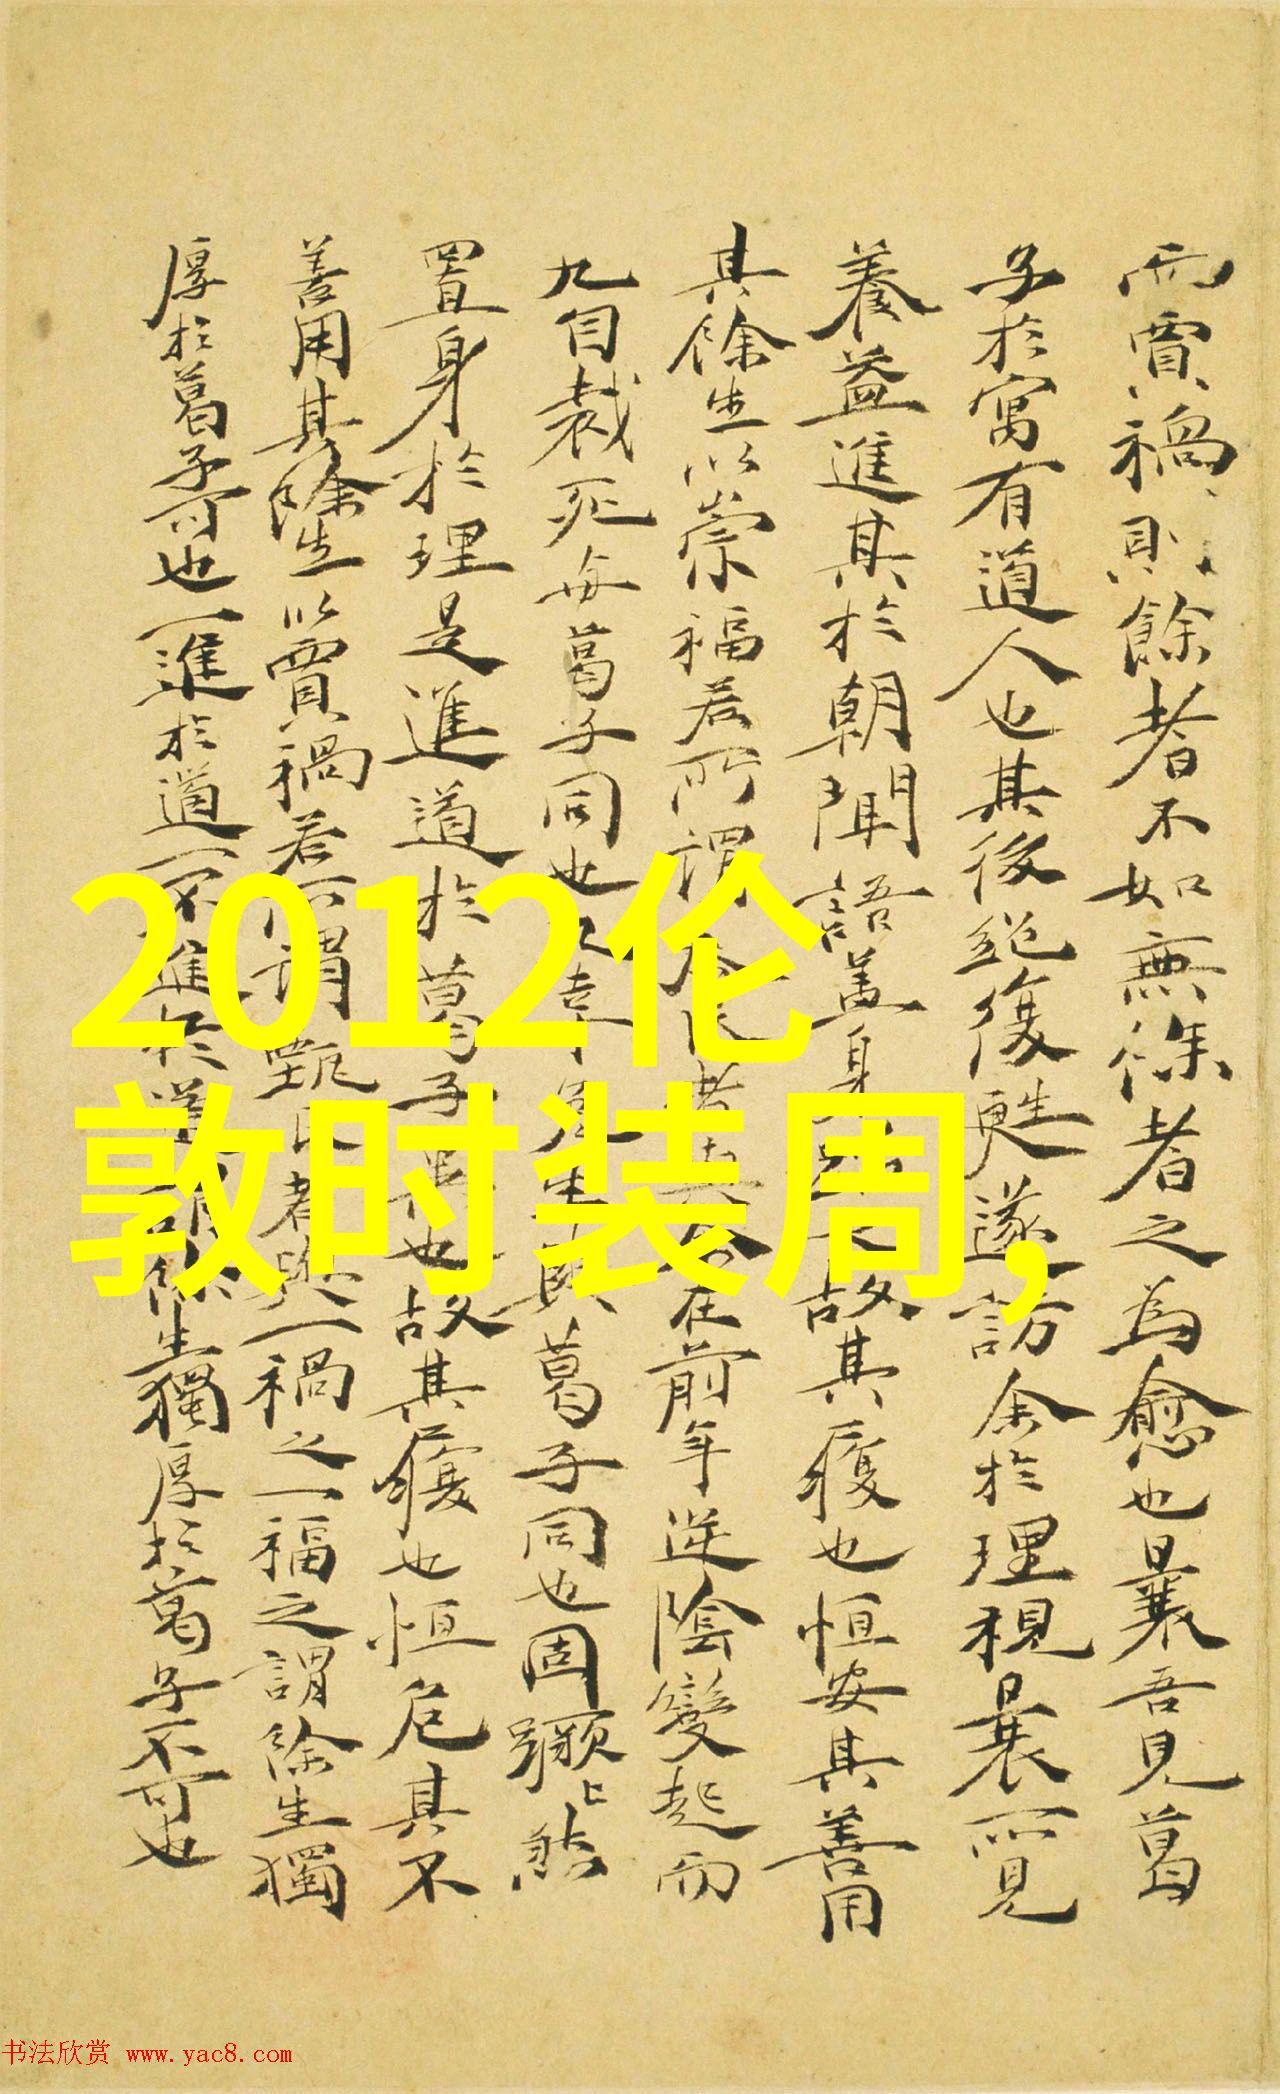 而賈禍則餘者不如無餘者之為愈也曩吾見葛
子於寓有道人也其後絕復甦遂訪余於理視曩所見
養益進其於朝聞語蓋身故其履也恒安其善用
其餘生以崇福若所謂在前年逆陰變起而
九自裁死毋葛子同也葛子同也固蹶
置身於理是進道於葛子也故其履也恒危其不
善用其餘生以賈禍若所謂甄氏者與一禍之一福之謂餘生獨
厚於葛子可也一進於道一不進於道謂餘生獨厚於葛子不可也
2012伦
敦时装周,
书法欣赏 www.yac8.com